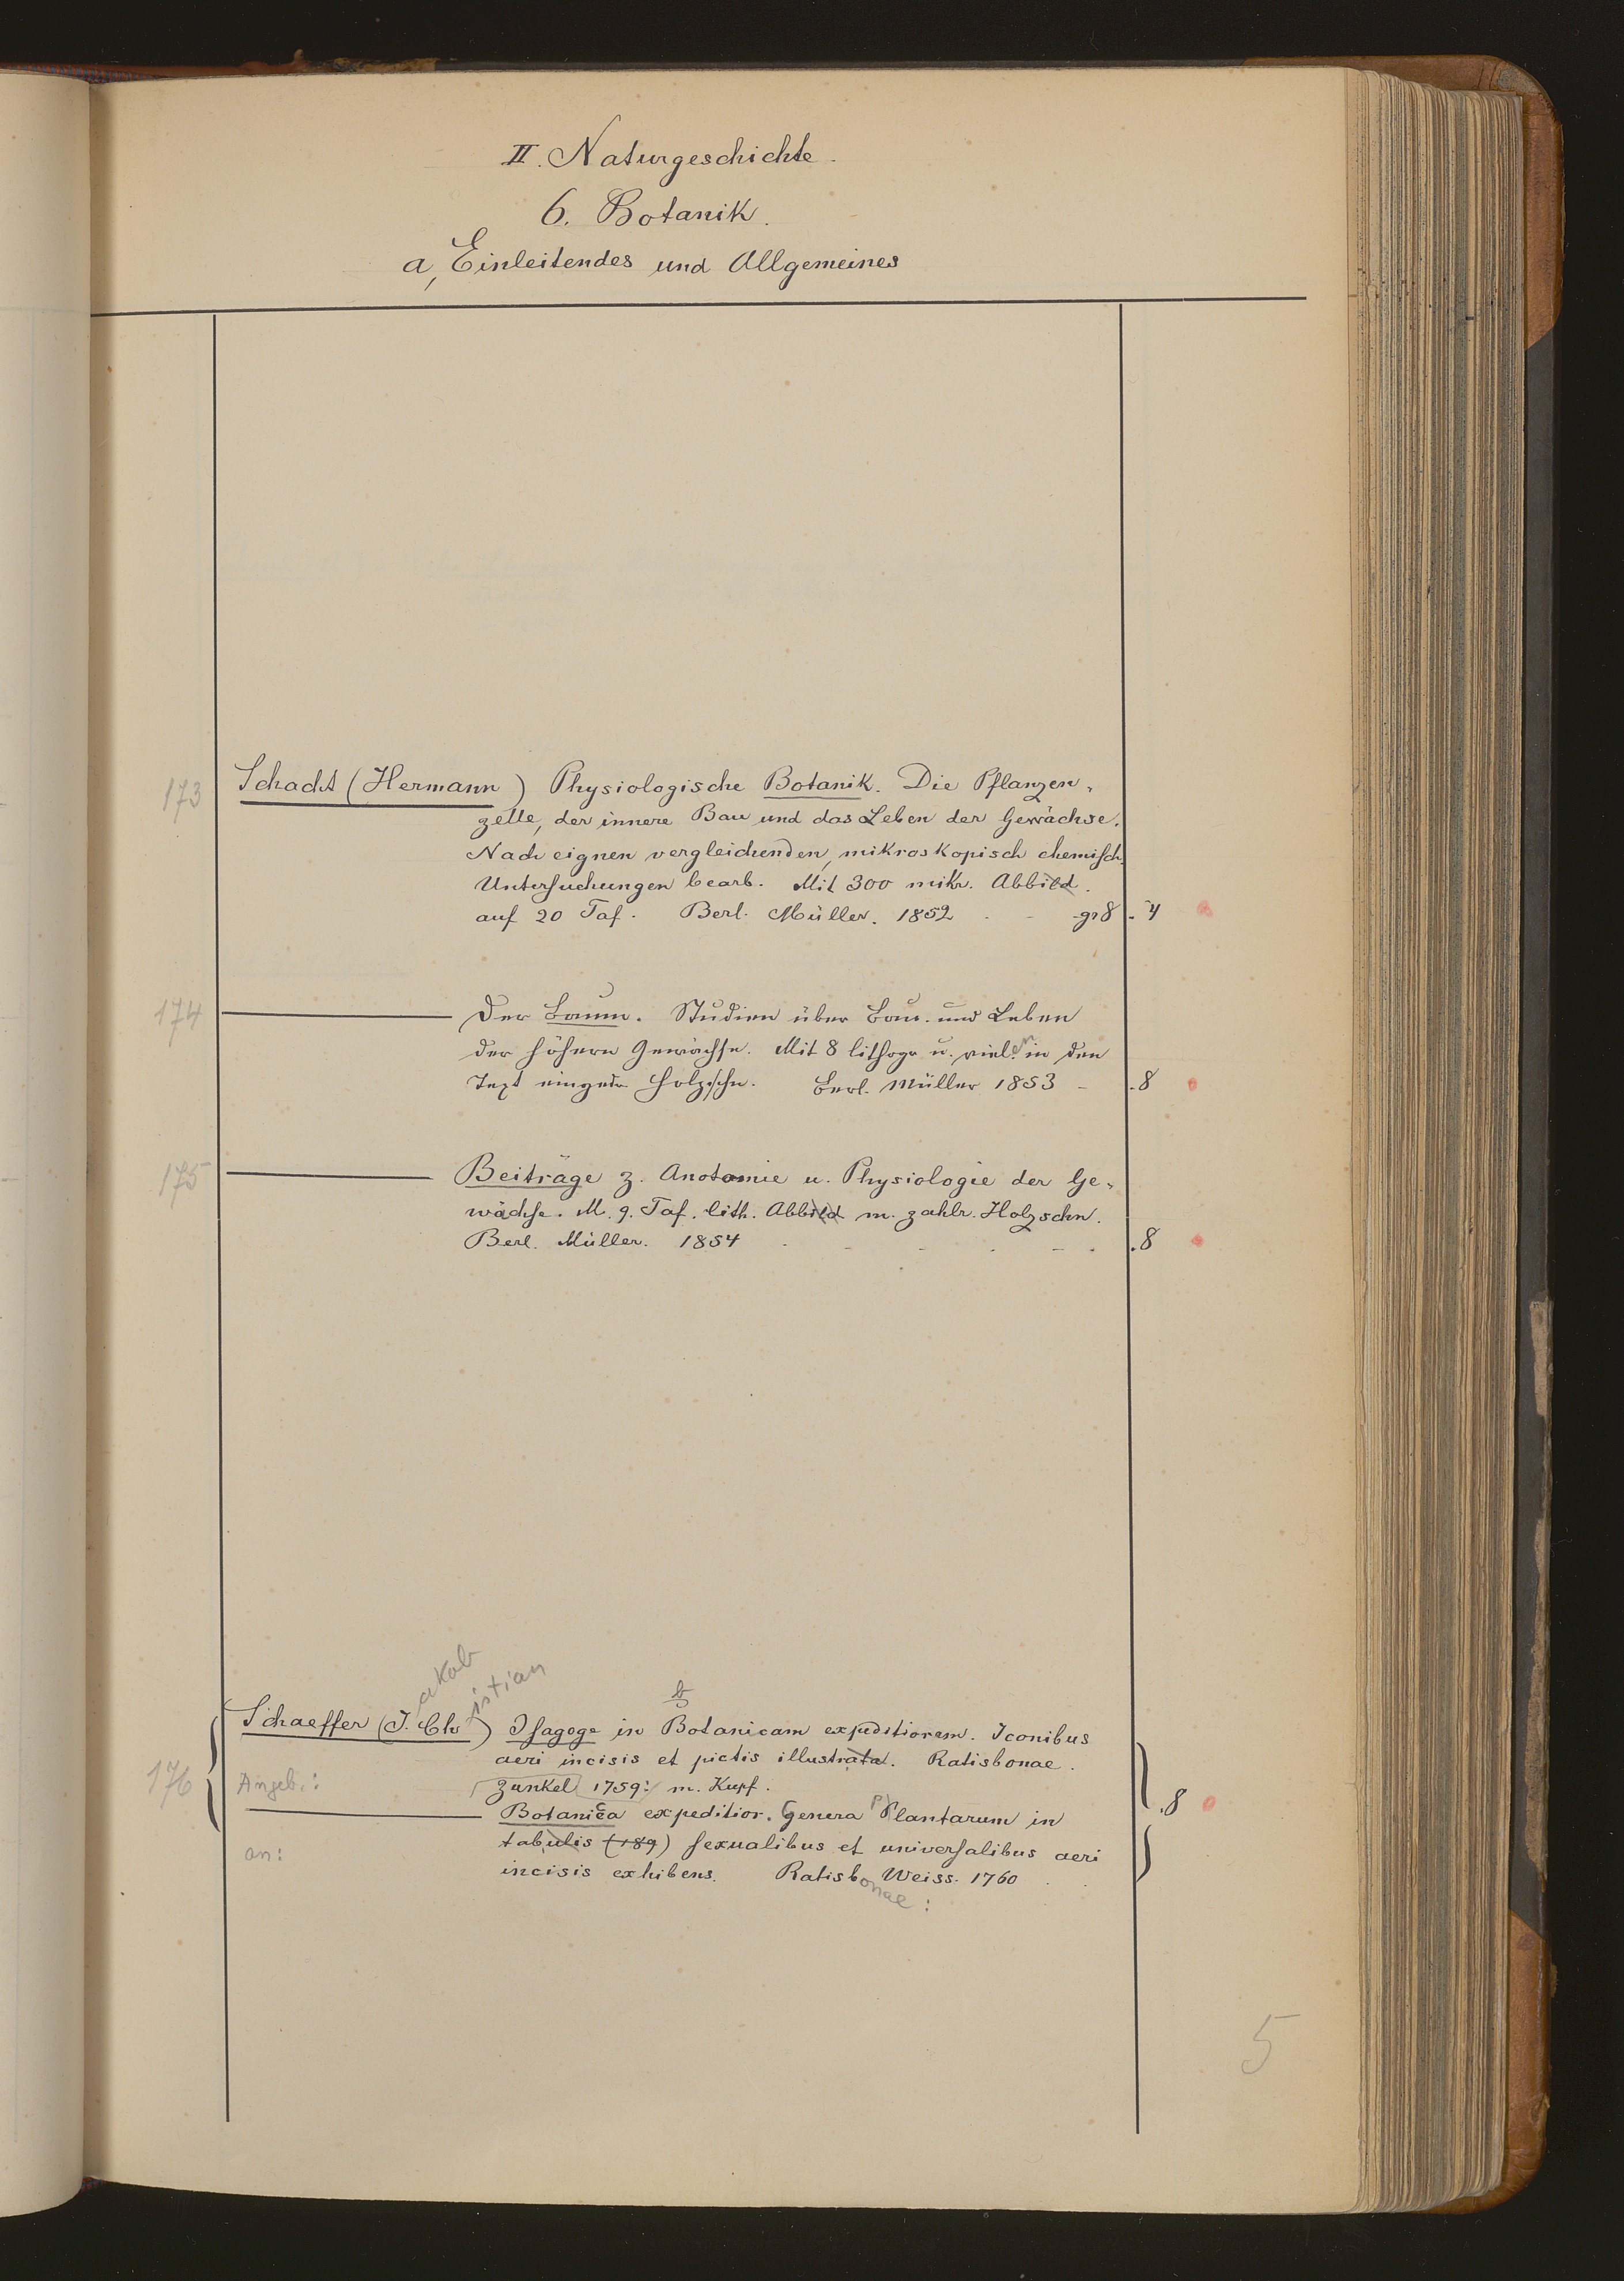 II. Naturgeschichte.
6. Botanik.
a, Einleitendes und Allgemeines
173 Schacht (Hermann) Physiologische Botanik. Die Pflanzen-
zelle, der innere Bau und das Leben der Gewächse.
Nach eignen vergleichenden, mikroskopisch chemisch.
Untersuchungen bearb. Mit 300 mikr. Abbild.
auf 20 Taf. Berl. Müller. 1852 - - gr 8. 4
174 Der Baum. Studien über Bau. und Leben
der höhern Gewächse. Mit 8 lithogr u. vielen in den
Text eingedr. Holzschn. Berl. Müller 1853 - . 8
175 Beiträge z. Anatomie u. Physiologie der Ge-
wächse. M. 9. Taf. lith. Abbild m. zahlr. Holzschn.
Berl. Müller. 1854 . 8
akob istian b
Schaeffer (J. Ch) Isagoge in Botanicam expeditiorem. Iconibus
aeri incisis et pictis illustrata. Ratisbonae.
176 Angeb.: Zunkel 1759: m. Kupf.
Botanica expeditior. Genera Plantarum in . 8
tabulis (189) sexualibus et universalibus aeri
an:
incisis exhibens. Ratisbonae: Weiss. 1760
5